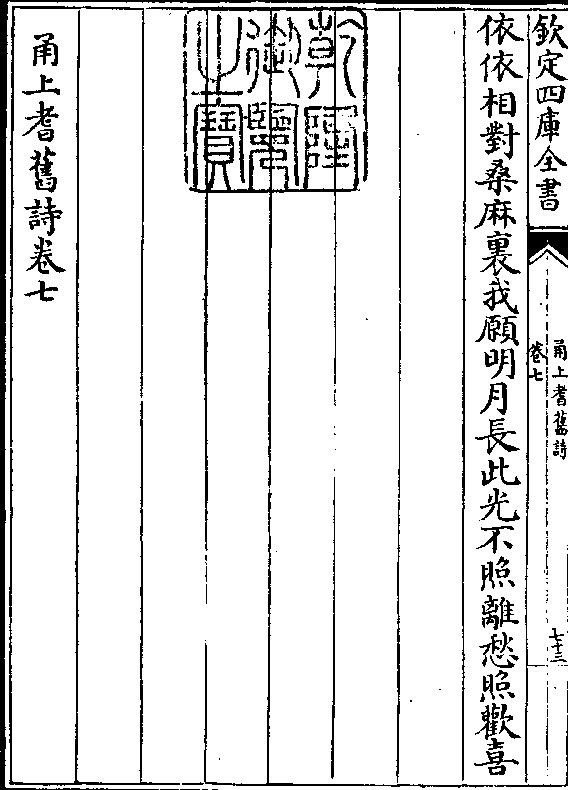 欽定四庫全書
甬上耆舊詩
卷七
七十三
依依相對桑麻裏我願明月長此光不照離愁照歡喜
乾隆
御覽
之寶
甬上耆舊詩卷七